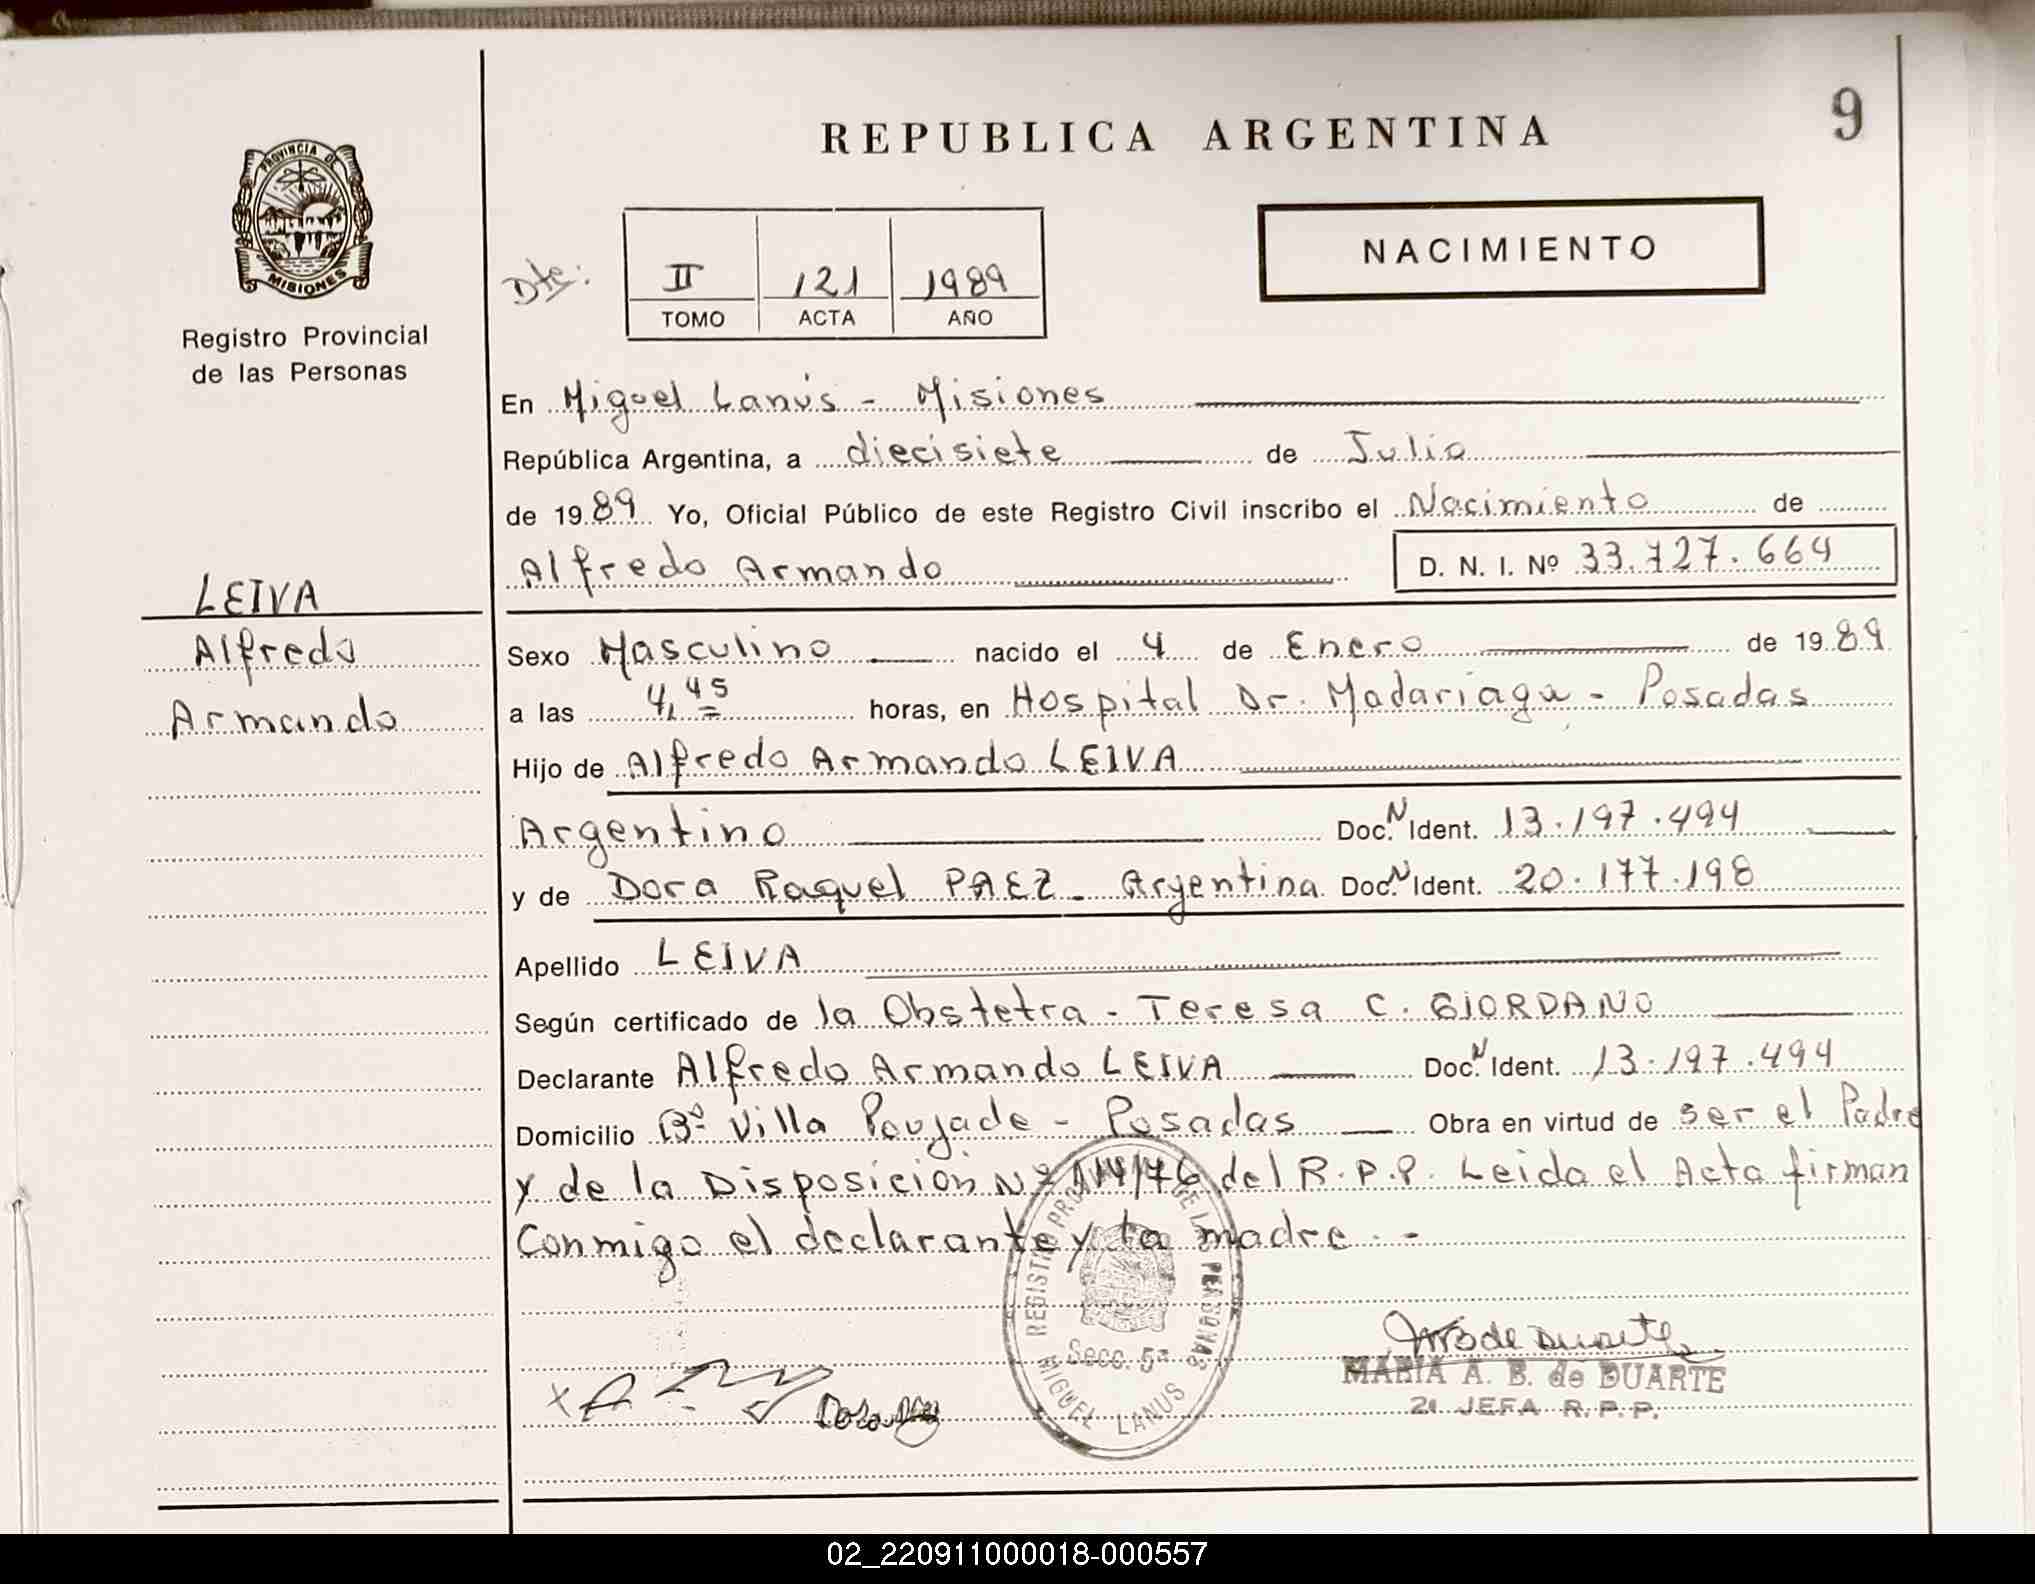 9
REPUBLICA ARGENTINA
PROVINCIA DE
MISIONES
Registro Provincial
de las Personas
NACIMIENTO
Dte: II 121 1989
TOMO ACTA AÑO
En Miguel Lanús - Misiones
República Argentina, a diecisiete de Julio
de 1989 Yo, Oficial Público de este Registro Civil inscribo el Nacimiento de
Alfredo Armando D. N. I. Nº 33.727.664
LEIVA
Alfredo
Armando
Sexo Masculino nacido el 4 de Enero de 1989
a las 4,45 horas, en Hospital Dr. Madariaga - Posadas
Hijo de Alfredo Armando LEIVA
Argentino Doc. N Ident. 13.197.494
y de Dora Raquel PAEZ - Argentina Doc. N Ident. 20.177.198
Apellido LEIVA
Según certificado de la Obstetra - Teresa C. GIORDANO
Declarante Alfredo Armando LEIVA Doc. N Ident. 13.197.494
Domicilio Bº Villa Poujade - Posadas Obra en virtud de ser el Padre
y de la Disposición Nº 114/76 del R.P.P. Leida el Acta firman
Conmigo el declarante y la madre. -
REGISTRO DE LAS PERSONAS
Secc. 5ª
MIGUEL LANUS
MARIA A. B. de DUARTE
JEFA R.P.P.
02_220911000018-000557